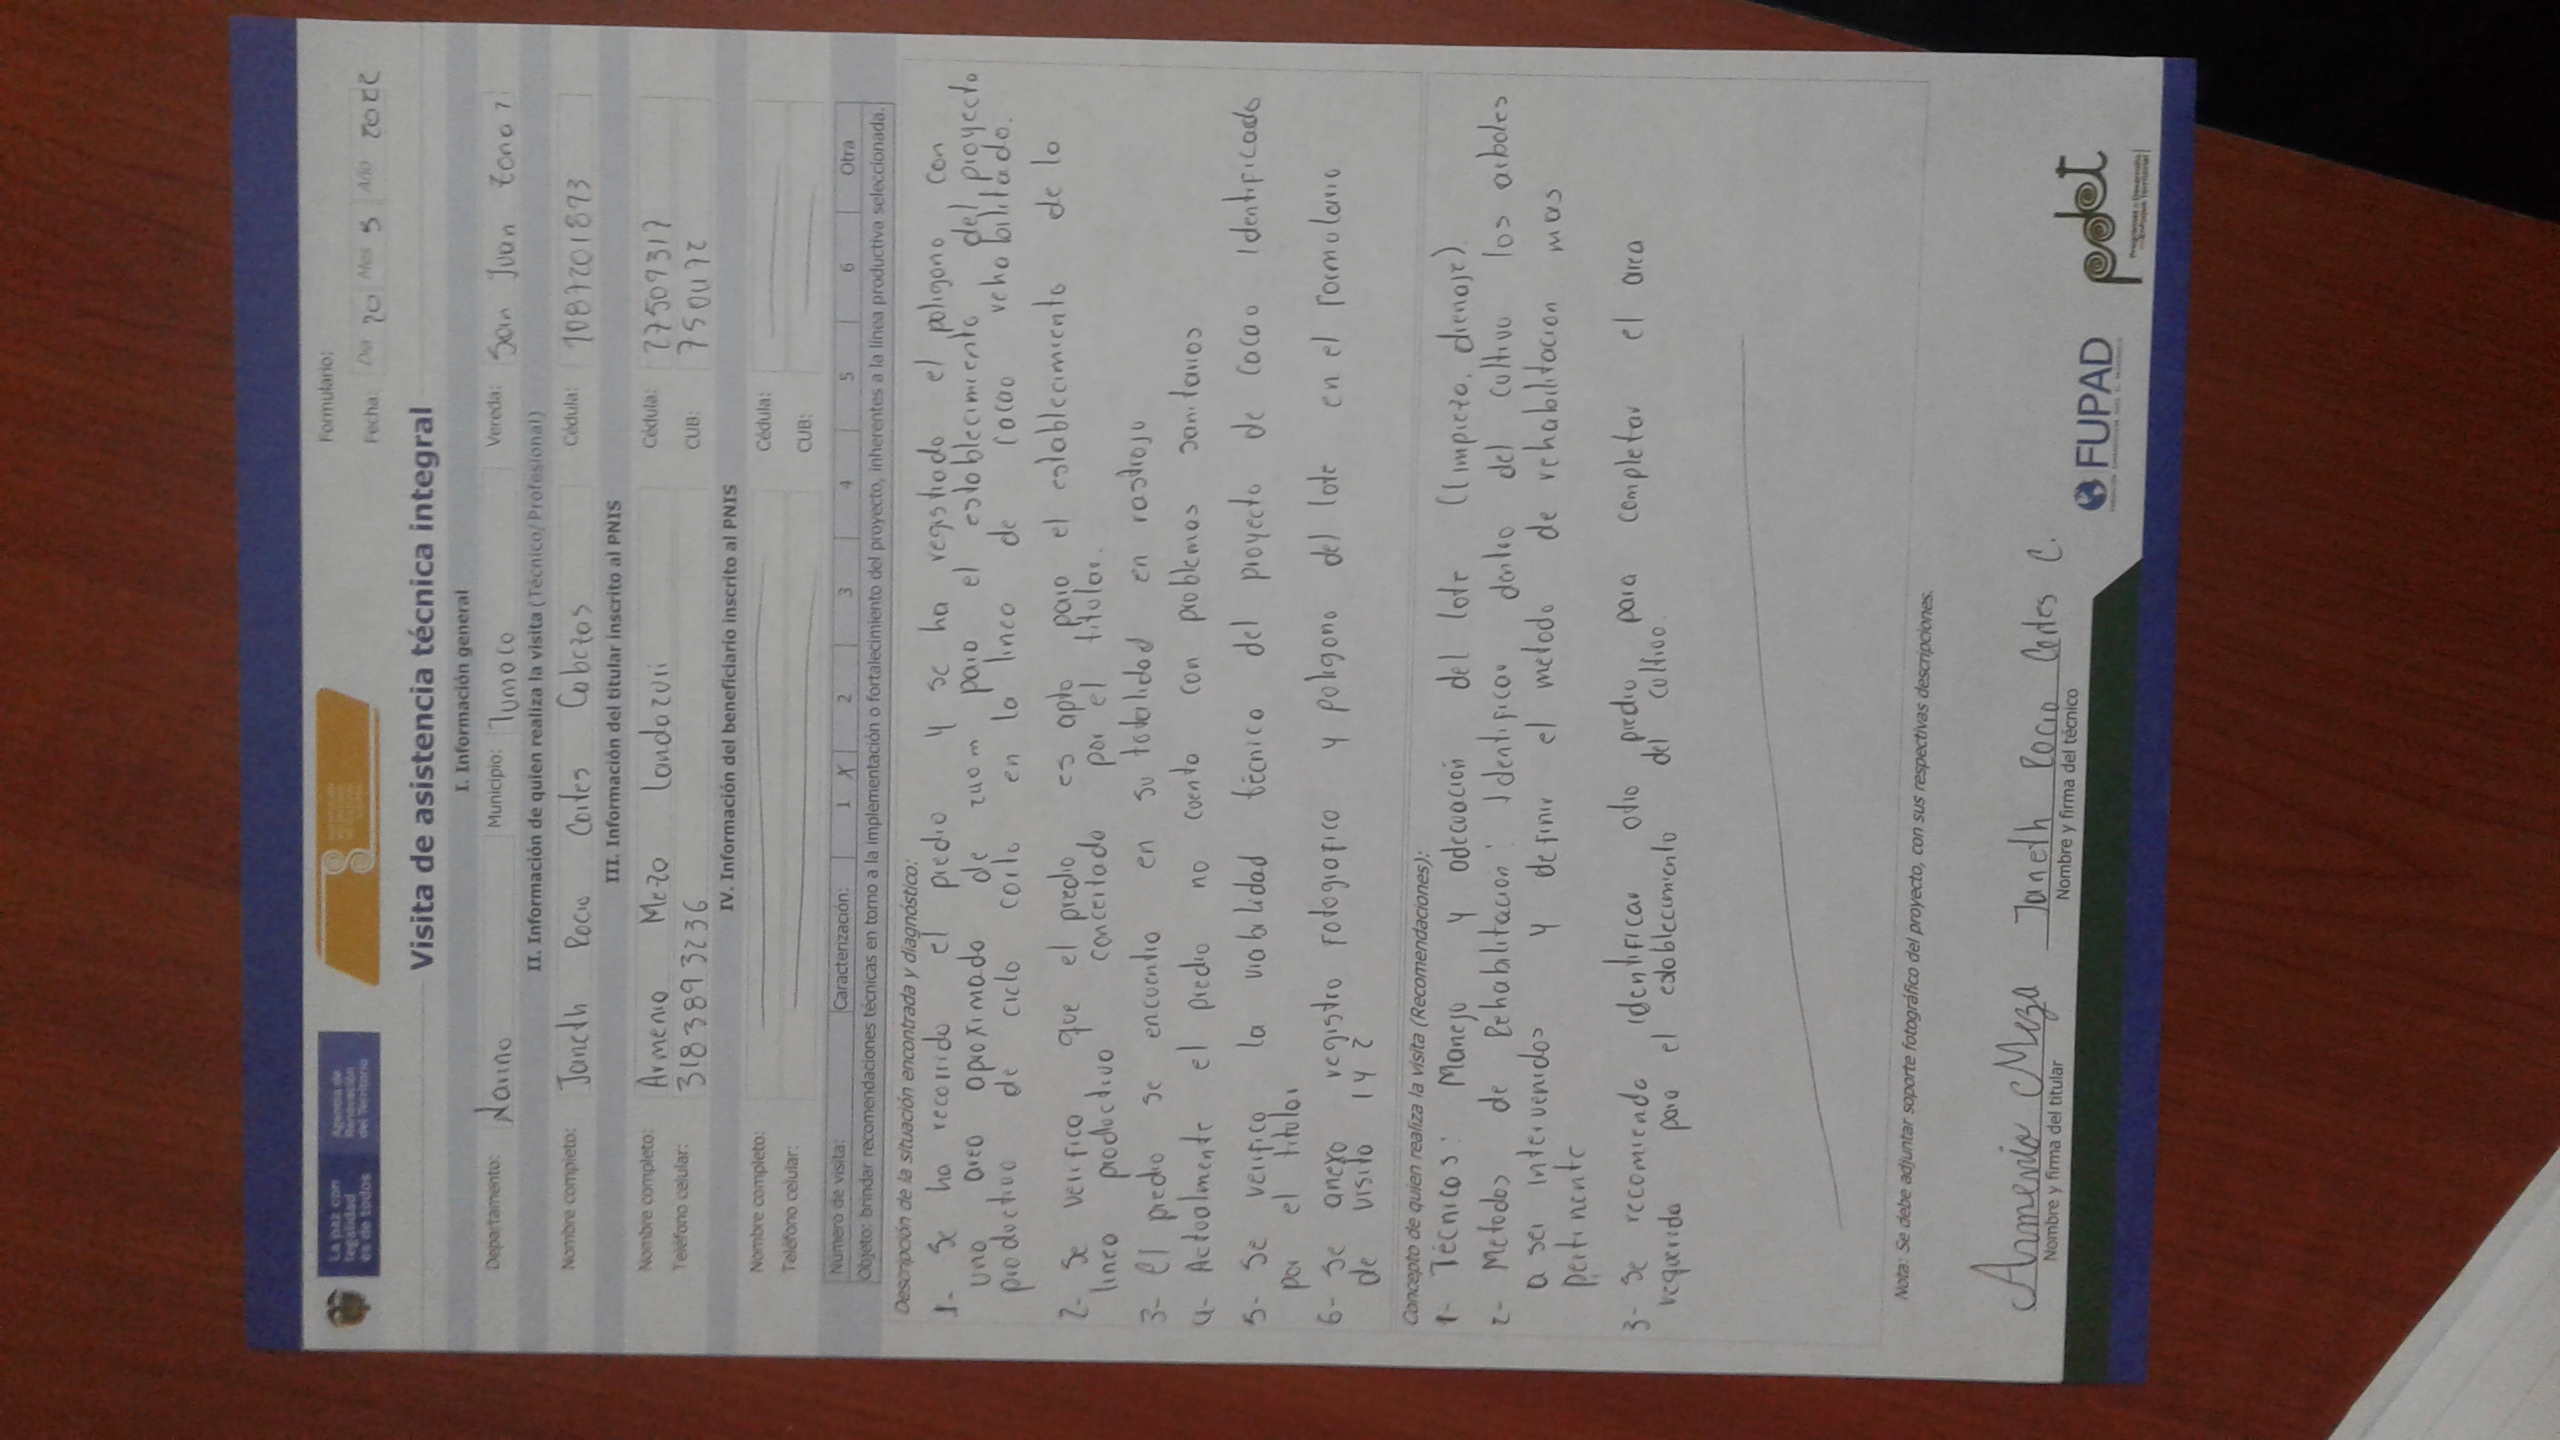 La paz con
legalidad
es de todos
Agencia de
Renovación
del Territorio
Formulario:
Fecha: Día 20 Mes 5 Año 2022
Visita de asistencia técnica integral
I. Información general
Departamento: Nariño Municipio: Tumaco Vereda: San Juan zona 1
II. Información de quien realiza la visita (Técnico/Profesional)
Nombre completo: Janeth Rocio Cortes Cabezas Cédula: 1087201893
III. Información del titular inscrito al PNIS
Nombre completo: Armenia Meza Landazuri Cédula: 27509317
Teléfono celular: 3183893236 CUB:
IV. Información del beneficiario inscrito al PNIS
Nombre completo: Cédula:
Teléfono celular: CUB:
Número de visita: Caracterización: 1 X 2 3 4 5 6 Otra
Objeto: brindar recomendaciones técnicas en torno a la implementación o fortalecimiento del proyecto, inherentes a la línea productiva seleccionada.
Descripción de la situación encontrada y diagnóstico:
1- Se ha recorrido el predio y se ha registrado el poligono con
una area aproximada de para el establecimiento del proyecto
productivo de ciclo corto en la linea de cacao rehabilitado.
2- Se verifico que el predio es apto para el establecimiento de lo
linea productiva concertado por el titular.
3- El predio se encuentra en su totalidad en rastrojo
4- Actualmente el predio no cuenta con problemas sanitarios
5- Se verifico la viabilidad técnica del proyecto de cacao Identificado
por el titular
6- Se anexo registro fotografico y poligono del lote en el formulario
de visita 1 y 2
Concepto de quien realiza la visita (Recomendaciones):
1- Técnicos: Manejo y adecuación del lote (limpieza, drenaje)
2- Metodos de Rehabilitación: Identificar dentro del cultivo los arboles
a ser intervenidos y definir el metodo de rehabilitacion mas
pertinente
3- Se recomienda identificar otro predio para completar el area
requerida para el establecimiento del cultivo.
Nota: Se debe adjuntar soporte fotográfico del proyecto, con sus respectivas descripciones.
Armenia Meza
Nombre y firma del titular
Janeth Rocio Cortes C.
Nombre y firma del técnico
FUPAD
pdet
Programas de Desarrollo
con Enfoque Territorial